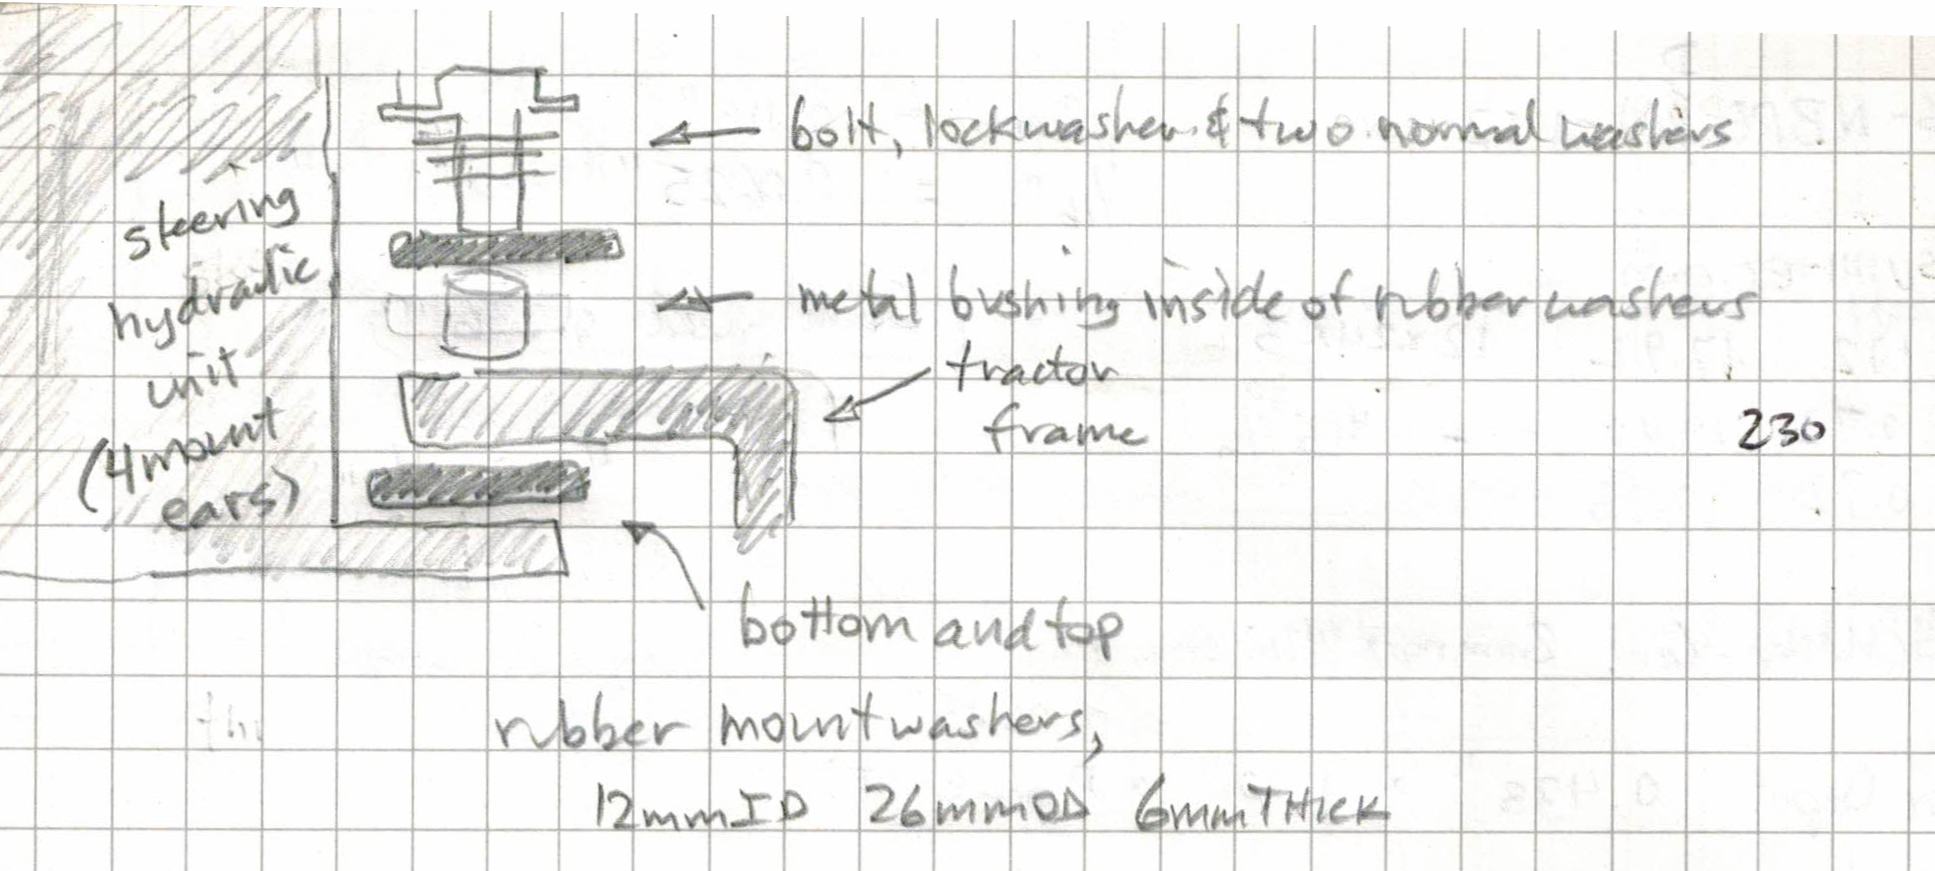 bolt, lockwasher & two normal washers
steering
hydraulic
unit
(4 mount
ears)
metal bushing inside of rubber washers
tractor
frame
230
bottom and top
rubber mount washers,
12mm ID 26mm OD 6mm THICK